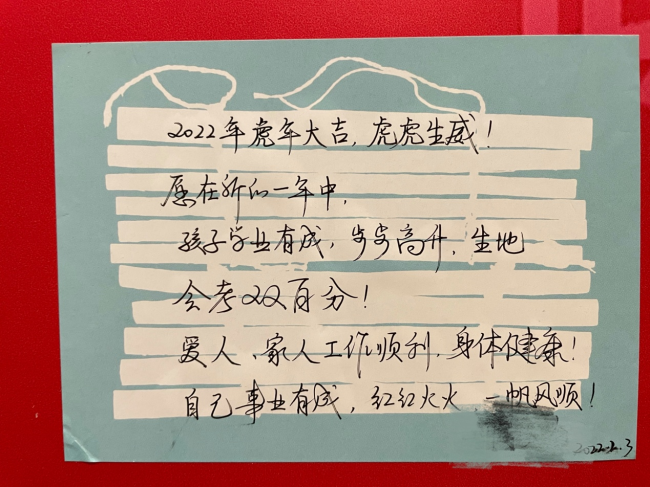 2022年虎年大吉，虎虎生威！
愿在新的一年中，
孩子学业有成，步步高升，生地
会考双百分！
爱人、家人工作顺利，身体健康！
自己事业有成，红红火火 一帆风顺！
2022.2.3